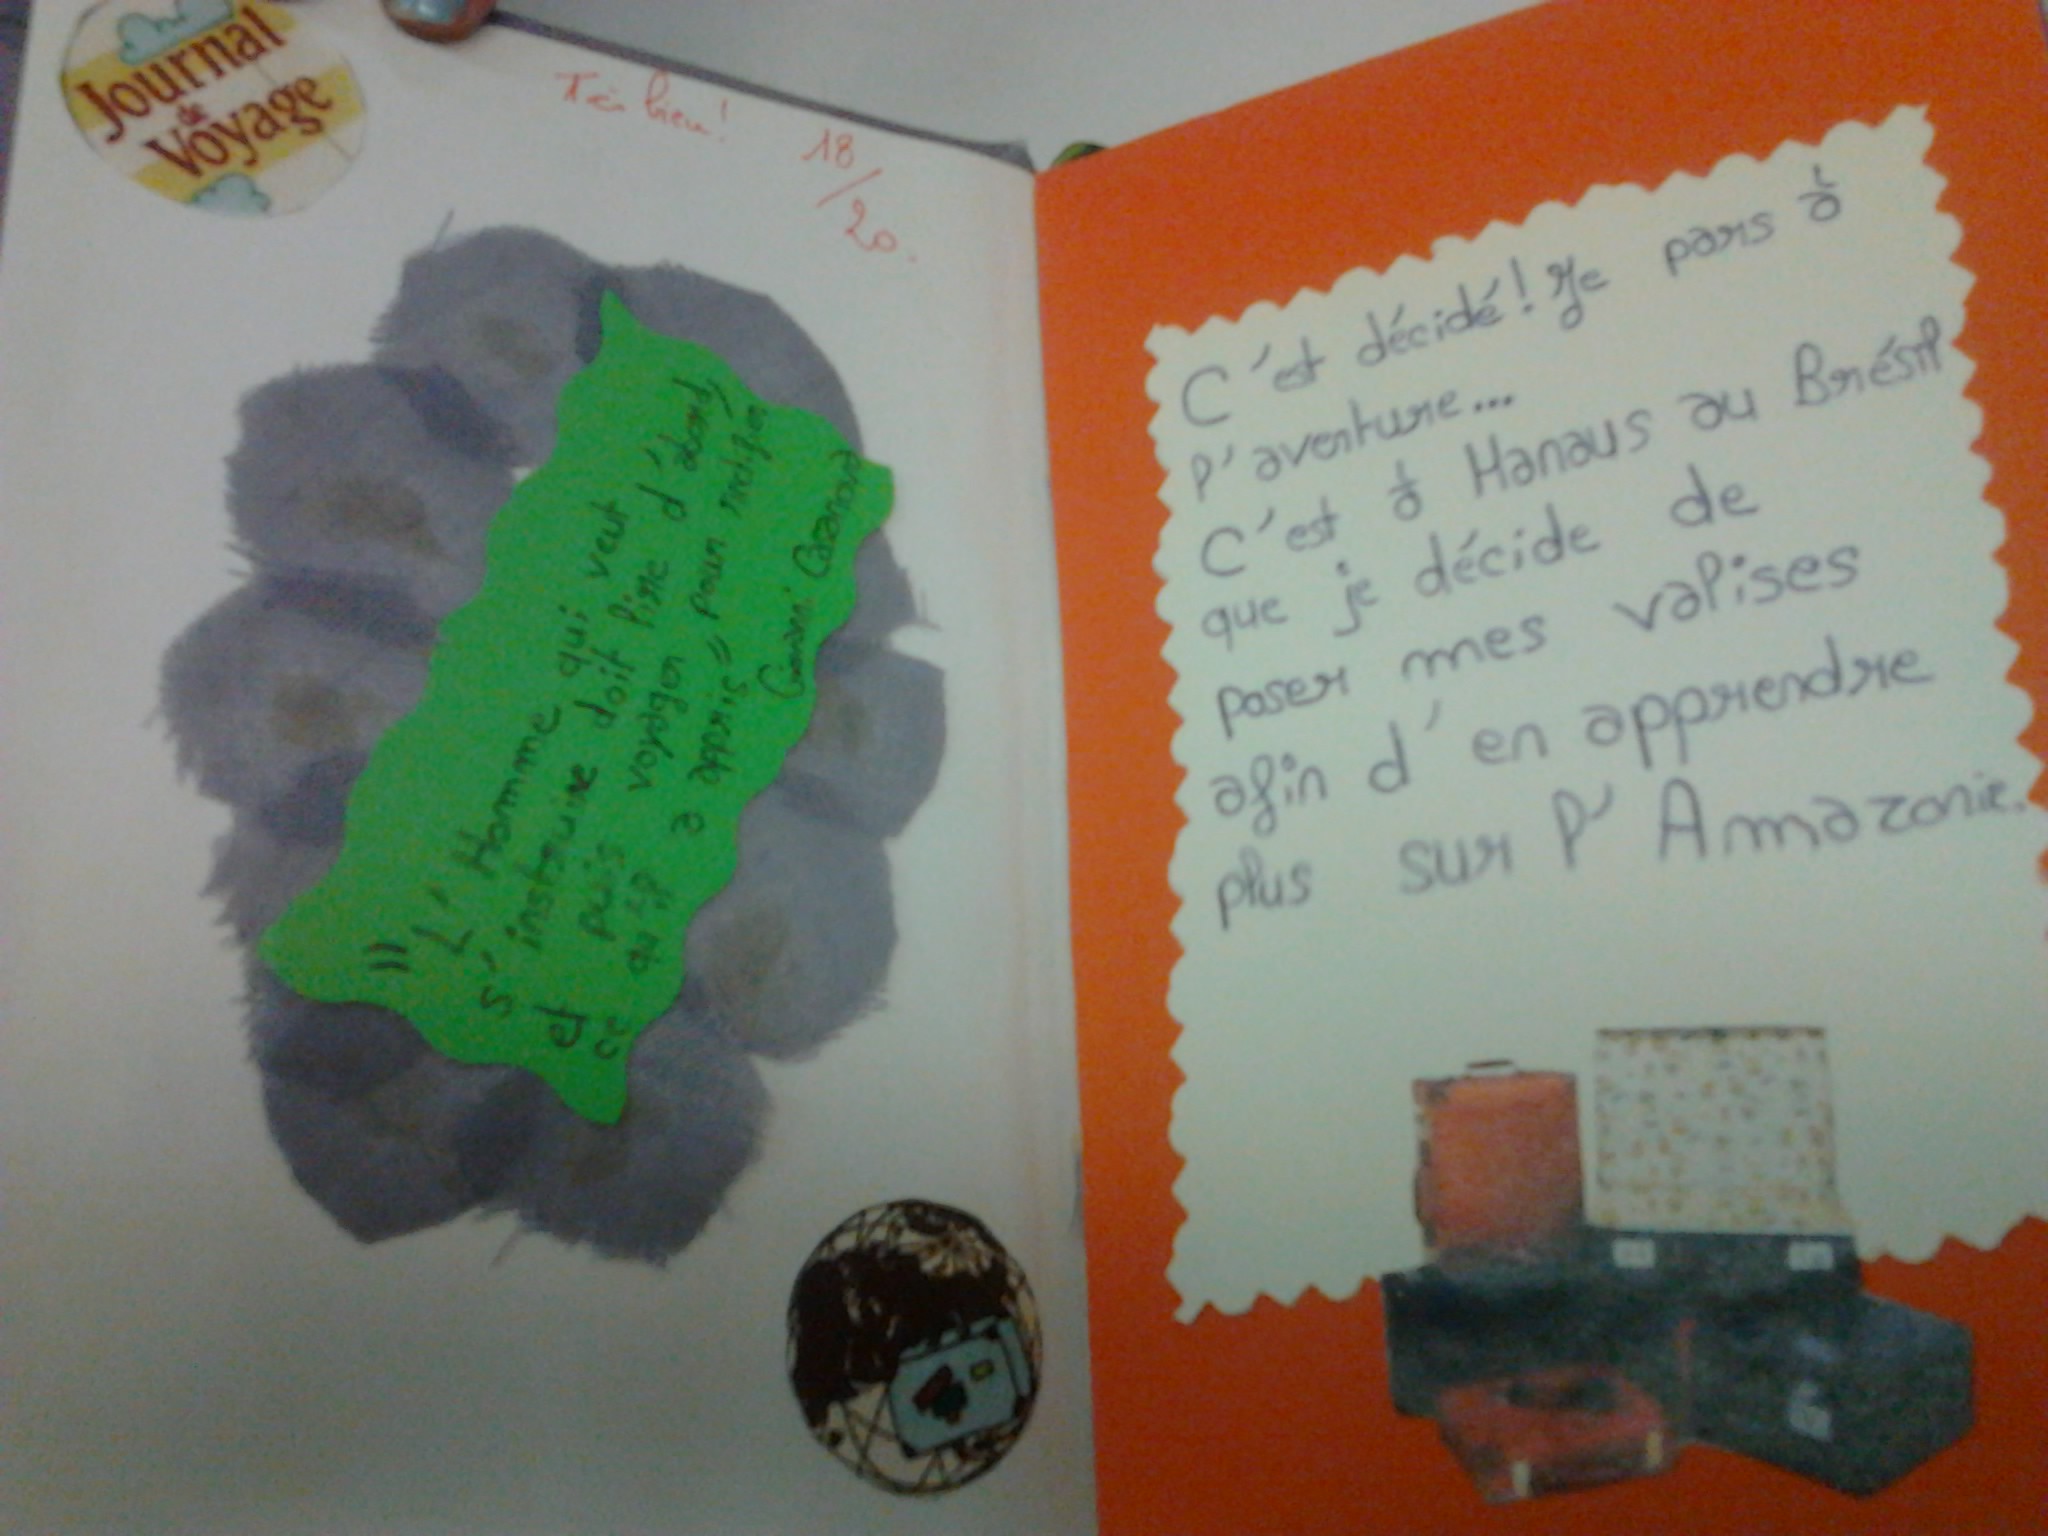 Journal
de
Voyage
Très bien! 18/20.
"L'Homme qui veut
s'instruire doit lire d'abord,
et puis voyager pour rectifier
ce qu'il a appris"
Cazanova
C'est décidé! Je pars à
l'aventure...
C'est à Manaus au Brésil
que je décide de
poser mes valises
afin d'en apprendre
plus sur l'Amazonie.